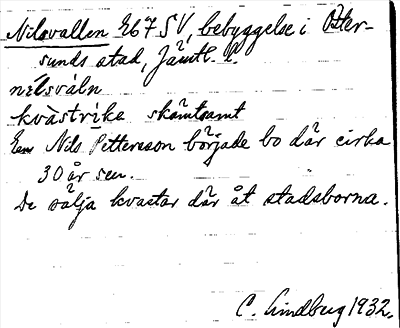 Nilsvallen 2b7SV, bebyggelse i Öster-
sunds stad, Jämtl. l.
nilsváln
kvàstrike skämtsamt
En Nils Pettersson började bo där cirka
30 år sen.
De sälja kvastar där åt stadsborna.
C. Lindberg 1932.